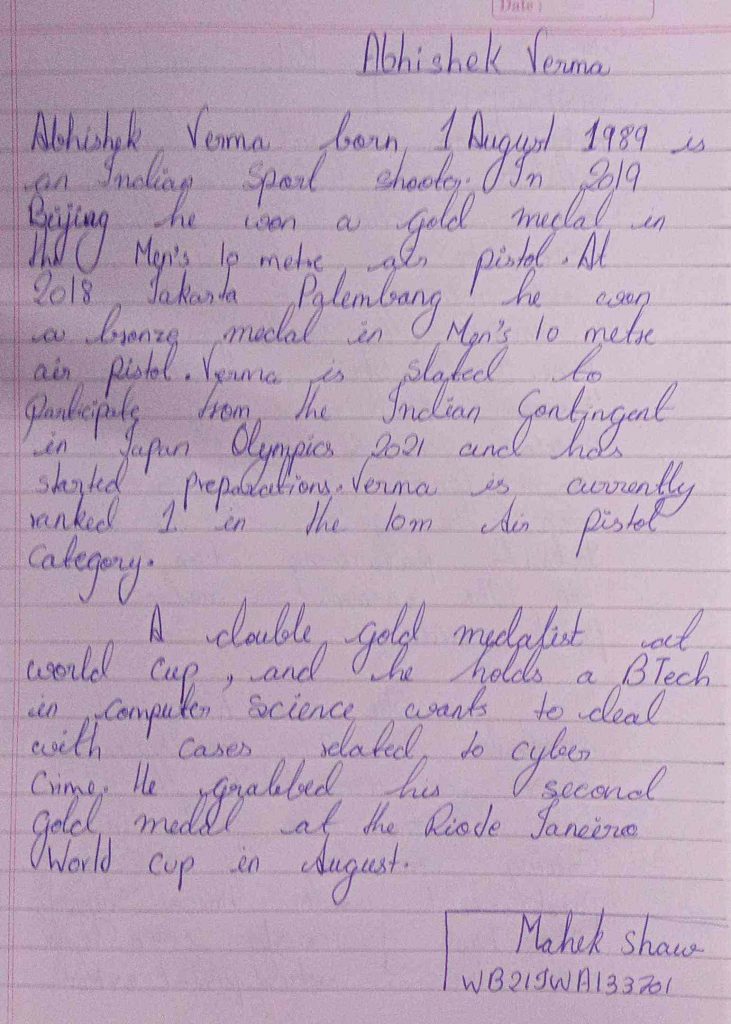 Date :
Abhishek Verma
Abhishek Verma born 1 August 1989 is
an Indian Sport shooter. In 2019
Beijing he won a gold medal in
the Men's 10 metre air pistol. At
2018 Jakarta Palembang he won
a bronze medal in Men's 10 metre
air pistol. Verma is slated to
participate from the Indian Contingent
in Japan Olympics 2021 and has
started preparations. Verma is currently
ranked 1 in the 10m Air pistol
Category.
A double gold medalist at
world cup, and he holds a BTech
in computer Science wants to deal
with cases related to cyber
Crime. He grabbed his second
gold medal at the Riode Janeiro
World cup in August.
Mahek Shaw
WB21SWA133701